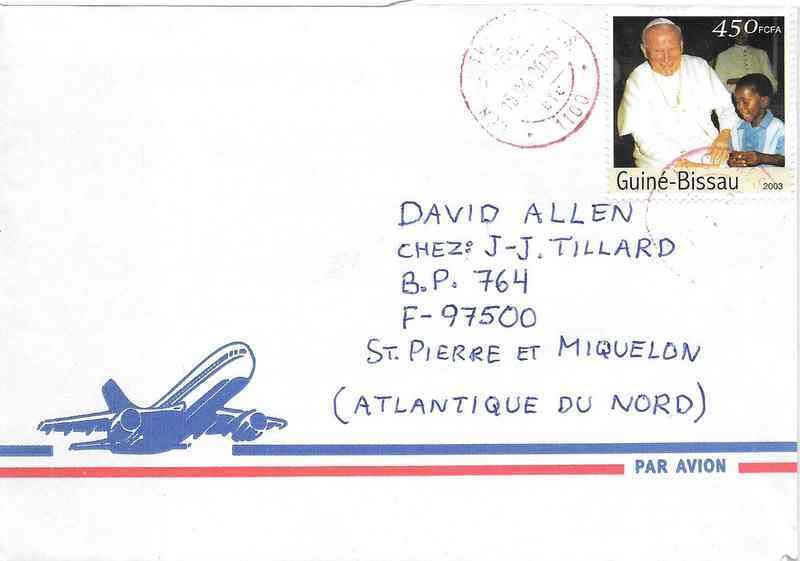 450 FCFA
Guiné-Bissau 2003
1100
DAVID ALLEN
CHEZ: J-J. TILLARD
B.P. 764
F-97500
ST. PIERRE ET MIQUELON
(ATLANTIQUE DU NORD)
PAR AVION